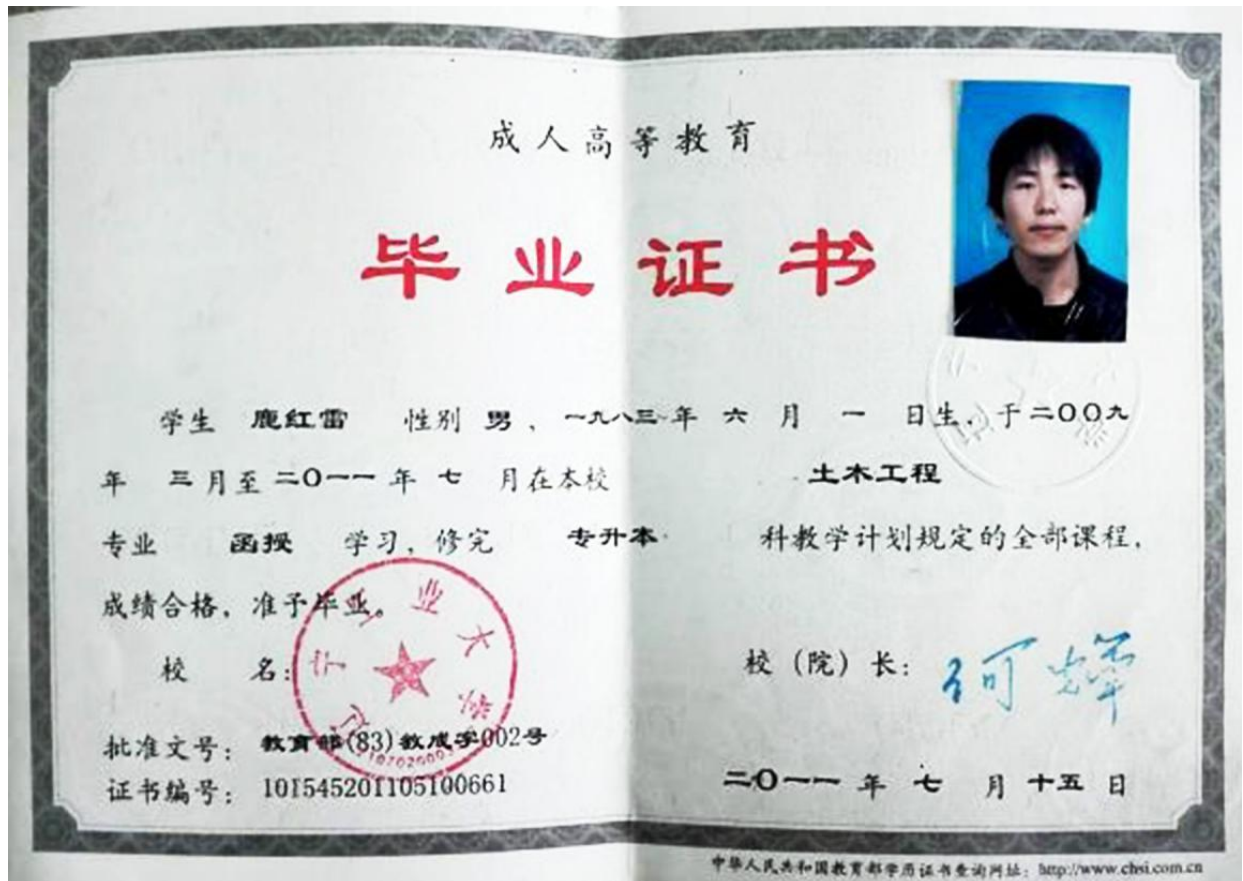 成人高等教育
毕业证书
学生 鹿红雷 性别 男、一九八三年 六 月 一 日生,于二〇〇九
年 三月至二〇一一年 七 月在本校 土木工程
专业 函授 学习,修完 专升本 科教学计划规定的全部课程,
成绩合格,准予毕业。
校 名: 校(院)长:
批准文号: 教育部(83)教成字002号
证书编号: 101545201105100661
二〇一一年 七 月 十五 日
中华人民共和国教育部学历证书查询网址:http://www.chsi.com.cn